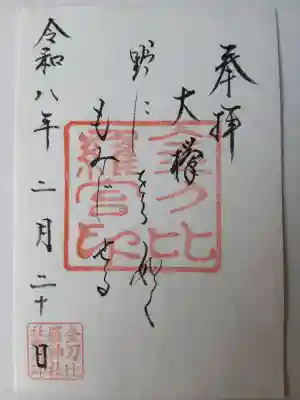 奉拝
大欅
野に
もみぢせる
令和八年 二月 二十日
金刀比
羅宮印
金刀比
羅神社